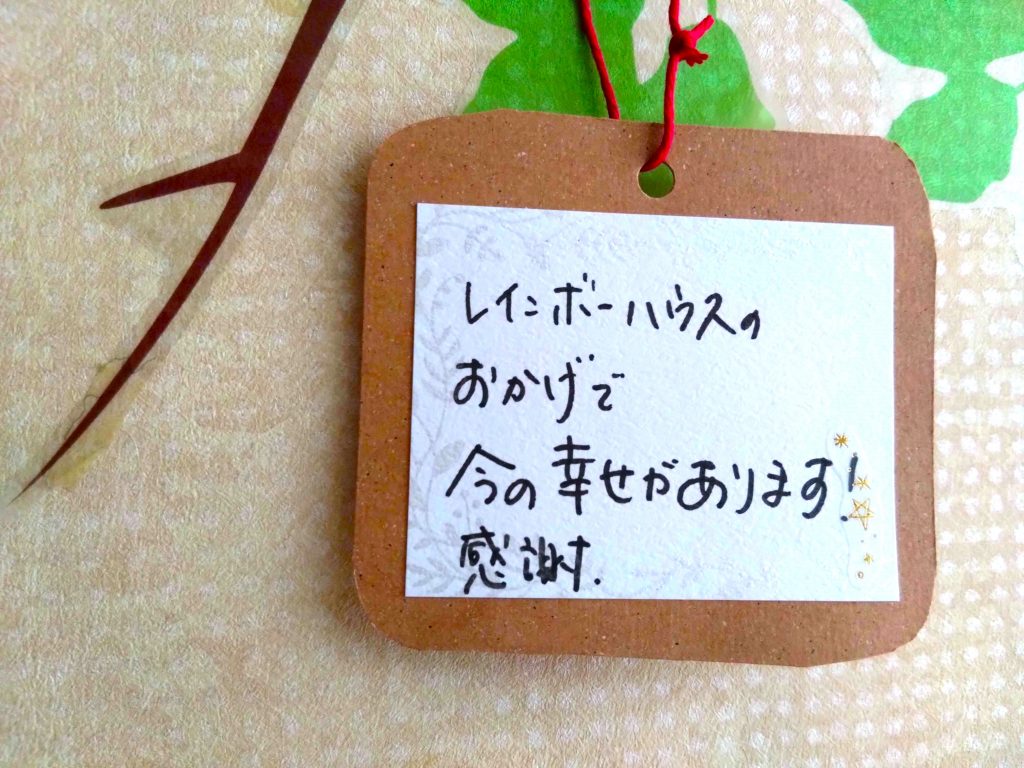 レインボーハウスの
おかげで
今の幸せがあります!
感謝.